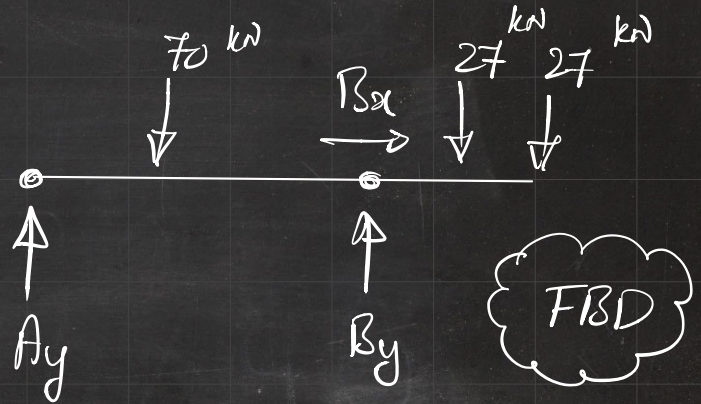 70 kN
27 kN 27 kN
Bx
Ay
By
FBD